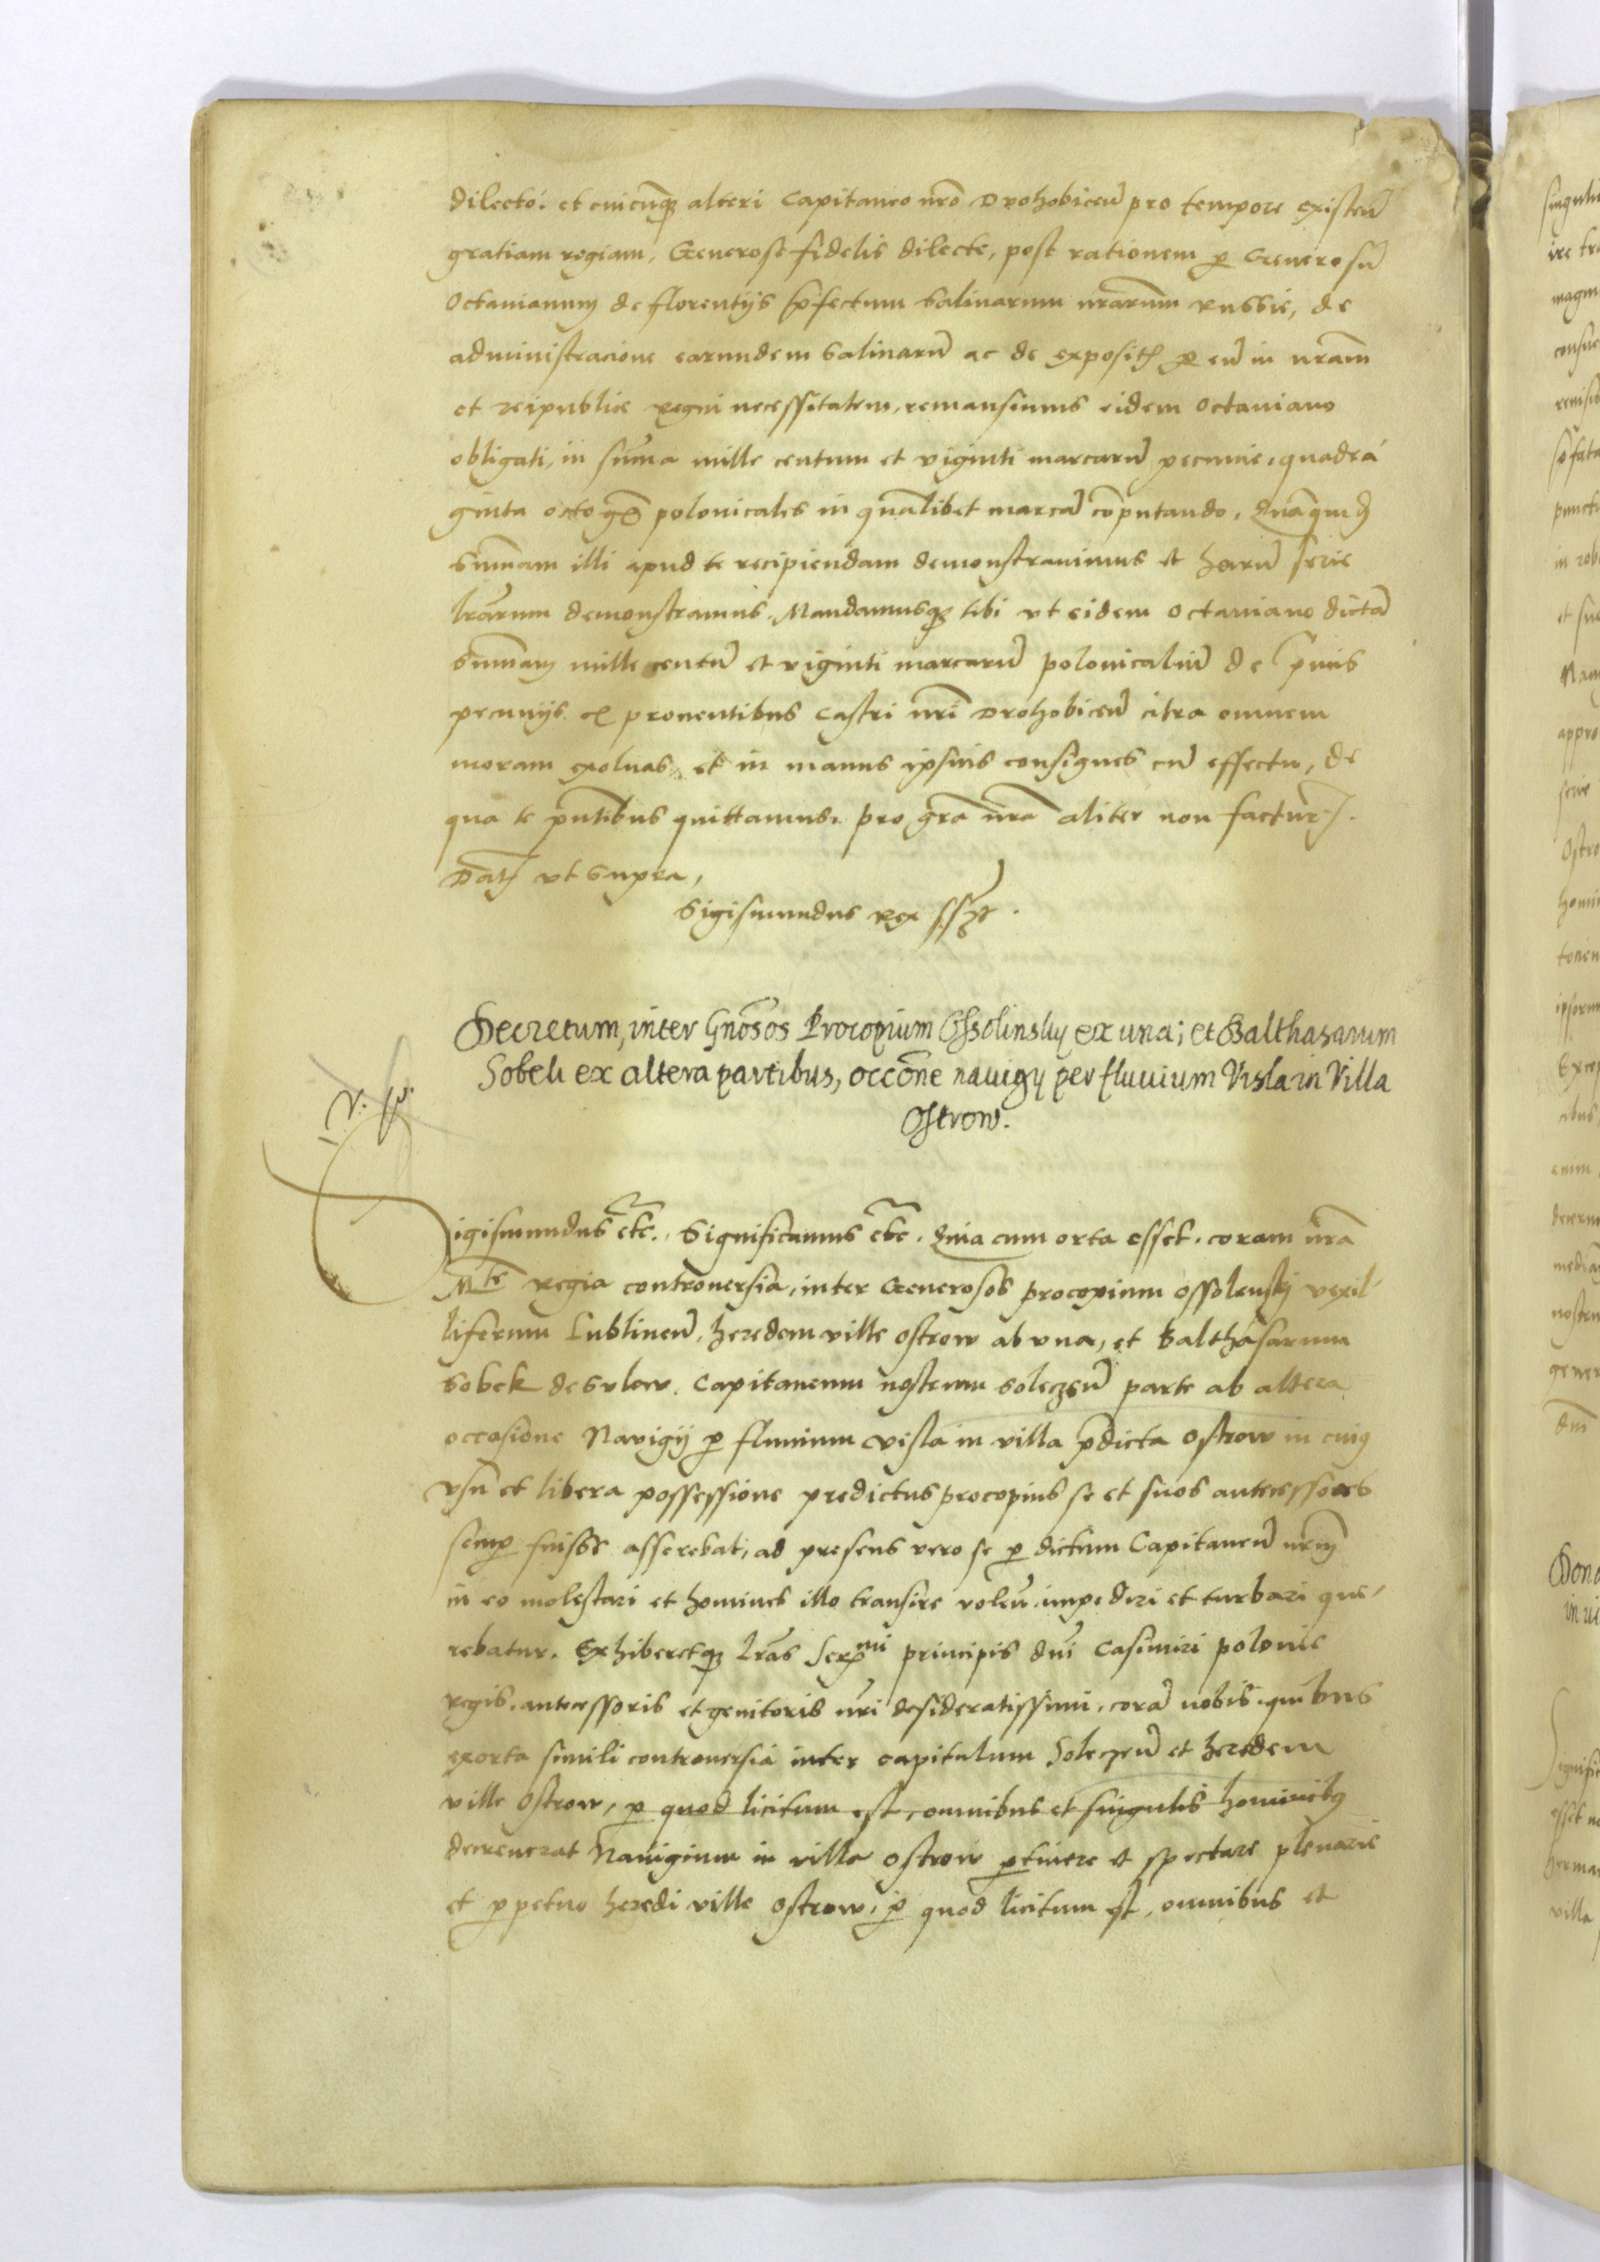 dilecto. et cuicūq₃ alteri Capitaneo nr̄o Drohobiceñ pro tempore existeñ
gratiam regiam, Generose fidelis dilecte, post rationem ꝑ Generosū
Octavianum de florentijs p̄fectum salinarum nr̄arum Russie, de
administracione earundem salinarū ac de exposit ꝑ eū in nr̄am
et reipublice regni necessitatem, remansimus eidem Octaviano
obligati, in sum̄a mille centum et viginti marcarū pecunie, quadra
ginta octo gr̄ polonicales in qualibet marcā cōputando, Quāquid
summam illi apud te recipiendam demonstravimus et harū serie
lr̄arum demonstramus, Mandamusq₃ tibi vt eidem Octaviano dictā
summam mille centū et viginti marcarū polonicaliū de p̄mis
pecunijs et proventibus Castri nr̄i Drohobiceñ citra omnem
moram exolvas, et in manus ipsius consignes cū effectu, de
qua te p̄ntibus quittamus. pro gr̄a nr̄a aliter non factur.
Dat vt supra,
Sigismundus rex sst.
Decretum, inter Gnōsos Procopium Ossolinsky ex una; et Balthasarum
Sobek ex altera partibus, occōne navigy per fluvium Visla in Villa
Ostrow.
Sigismundus etc. Significamus etc. Quia cum orta esset. coram nr̄a
Mte regia controversia, inter Generosos procopium Ossolensky vexil
liferum Lublineñ, heredem ville Ostrow ab vna, et Balthasarum
Sobek de Sulow. Capitaneum nostrum Soleczeñ parte ab altera
occasione Navigij ꝑ fluvium Visla in villa p̄dicta Ostrow in cuiq
vsu et libera possessione predictus procopius se et suos antecessores
semꝑ fuisse asserebat, ad presens vero se ꝑ dictum Capitaneū nr̄m
in eo molestari et homines illo transire voleñ impediri et turbari que
rebatur. Exhiberetq₃ lr̄as Ser^mi principis dn̄i Casimiri polonie
regis. antecessoris et genitoris nr̄i desideratissimi, corā nobis. quibus
exorta simili controversia inter capitulum Soleczeñ et heredem
ville Ostrow, ꝑ quod licitum est, omnibus et singulis hominibq
decreverat Navigium in villa Ostrow ꝑtinere et spectare plenarie
et ꝑpetuo heredi ville Ostrow, ꝑ quod licitum est, omnibus et